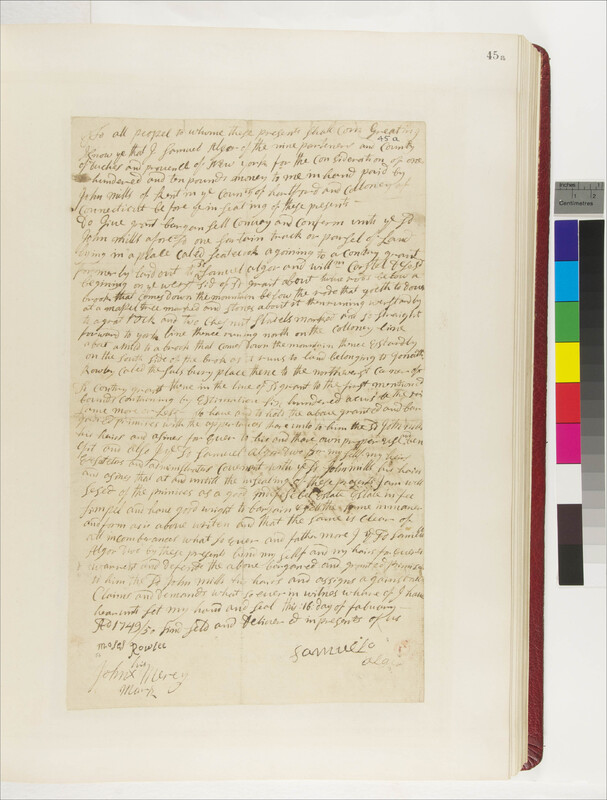 45a
To all peopel to whome these presents shall Com Greating
45a
Know ye that I Samuel Algor of the nine parteners and County
of Duches and provence of New york for the Consideration of one
hundered and ten pounds money to me in hand paid by
John mills of Kent in ye County of hartford and Colloney of
Connecticut before Ensealing of these presents
Do Give grant bargun sell Convay and Conferm unto ye sd
John mills aforesd one sertain track or parsel of Land
lying in a plase Called a joining to a Contry grant
formerly laid out to sd Samuel algor and will
begining on ye west sid of sd grant about rods below a
brook that Comes down the mountain below the rode that goeth to Dover
at a tree marked and stones about it then running westward by
to a great Rock and two Chesnut marked and so straight
forward to york line thence runing north on the Colloney line
about a mild to a brook that Comes down the mountain thence Eastardly
on the south side of the brook as it runs to land belonging to
Rowley Caled the salsbury place thence to the northwest Corner of
sd Contry grant thence in the line of sd grant to the furst mentioned
bounds Containing by Estimation hundered acers be the
same more or less To have and to hold the above granted and bar
gained primises with the appertences thare unto to him the sd John mills
his hairs and asines for Ever to his and thare own proper
also I ye sd Samuel Algor Doe for my self my hairs
Executors and administrators Covenant with ye sd John mills his hairs
and asines that at and untill the insealing of these presents I am well
of the primises as a good Estate in fee
simpel and have good wright to bargain & sell the same in manner
and form as is above writen and that the same is Clear of
all incomberances what so Ever and father more I ye sd Samuel
Algor Doe by these presents bind my self and my hairs for Ever to
warrant and defend the above bargoned and granted
to him the sd John mills his hairs and assigns against all
Claims and demands what so ever in witnes whereof I have
hereunto set my hand and seal this 16 day of
AD 1749/50 Sind seld and Deliver d in presents of us
moses Rowlee
Samuel
algor
his
John X
Mark
Inches
1
2
Centimetres